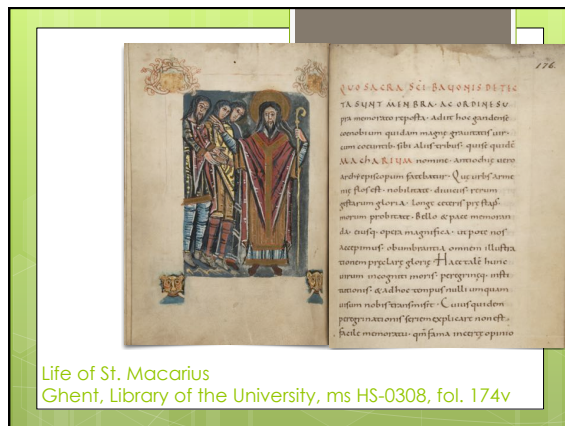 176.
QUO SACRA SCI BAVONIS DETEC
TA SUNT MENBRA. AC ORDINE SU
pra memorato reposta. Adiit hoc gandense
coenobium quidam magne gravitatis vir.
cum coeuntib. sibi aliis tribus. qui se quidē
MACHARIUM nomine. antiochie vero
archiepiscopum fatebatur. Que urbs arme
nie flos est. nobilitate. divitiis rerum
gestarum gloria. longe ceteris prestans
morum probitate. Bello & pace memoran
da. eiusq. opera magnifica. ut pote nos
accepimus. omnem illustra
tionem preclare glorie. Hac tale hunc
virum incogniti moris. peregrineq. insti
tutionis. & ad hoc tempus nulli umquam
visum nobis transmisit. Cuius quidem
peregrinationis seriem explicare non est
facile memoratu. qm̄ fama incerte opinio
Life of St. Macarius
Ghent, Library of the University, ms HS-0308, fol. 174v